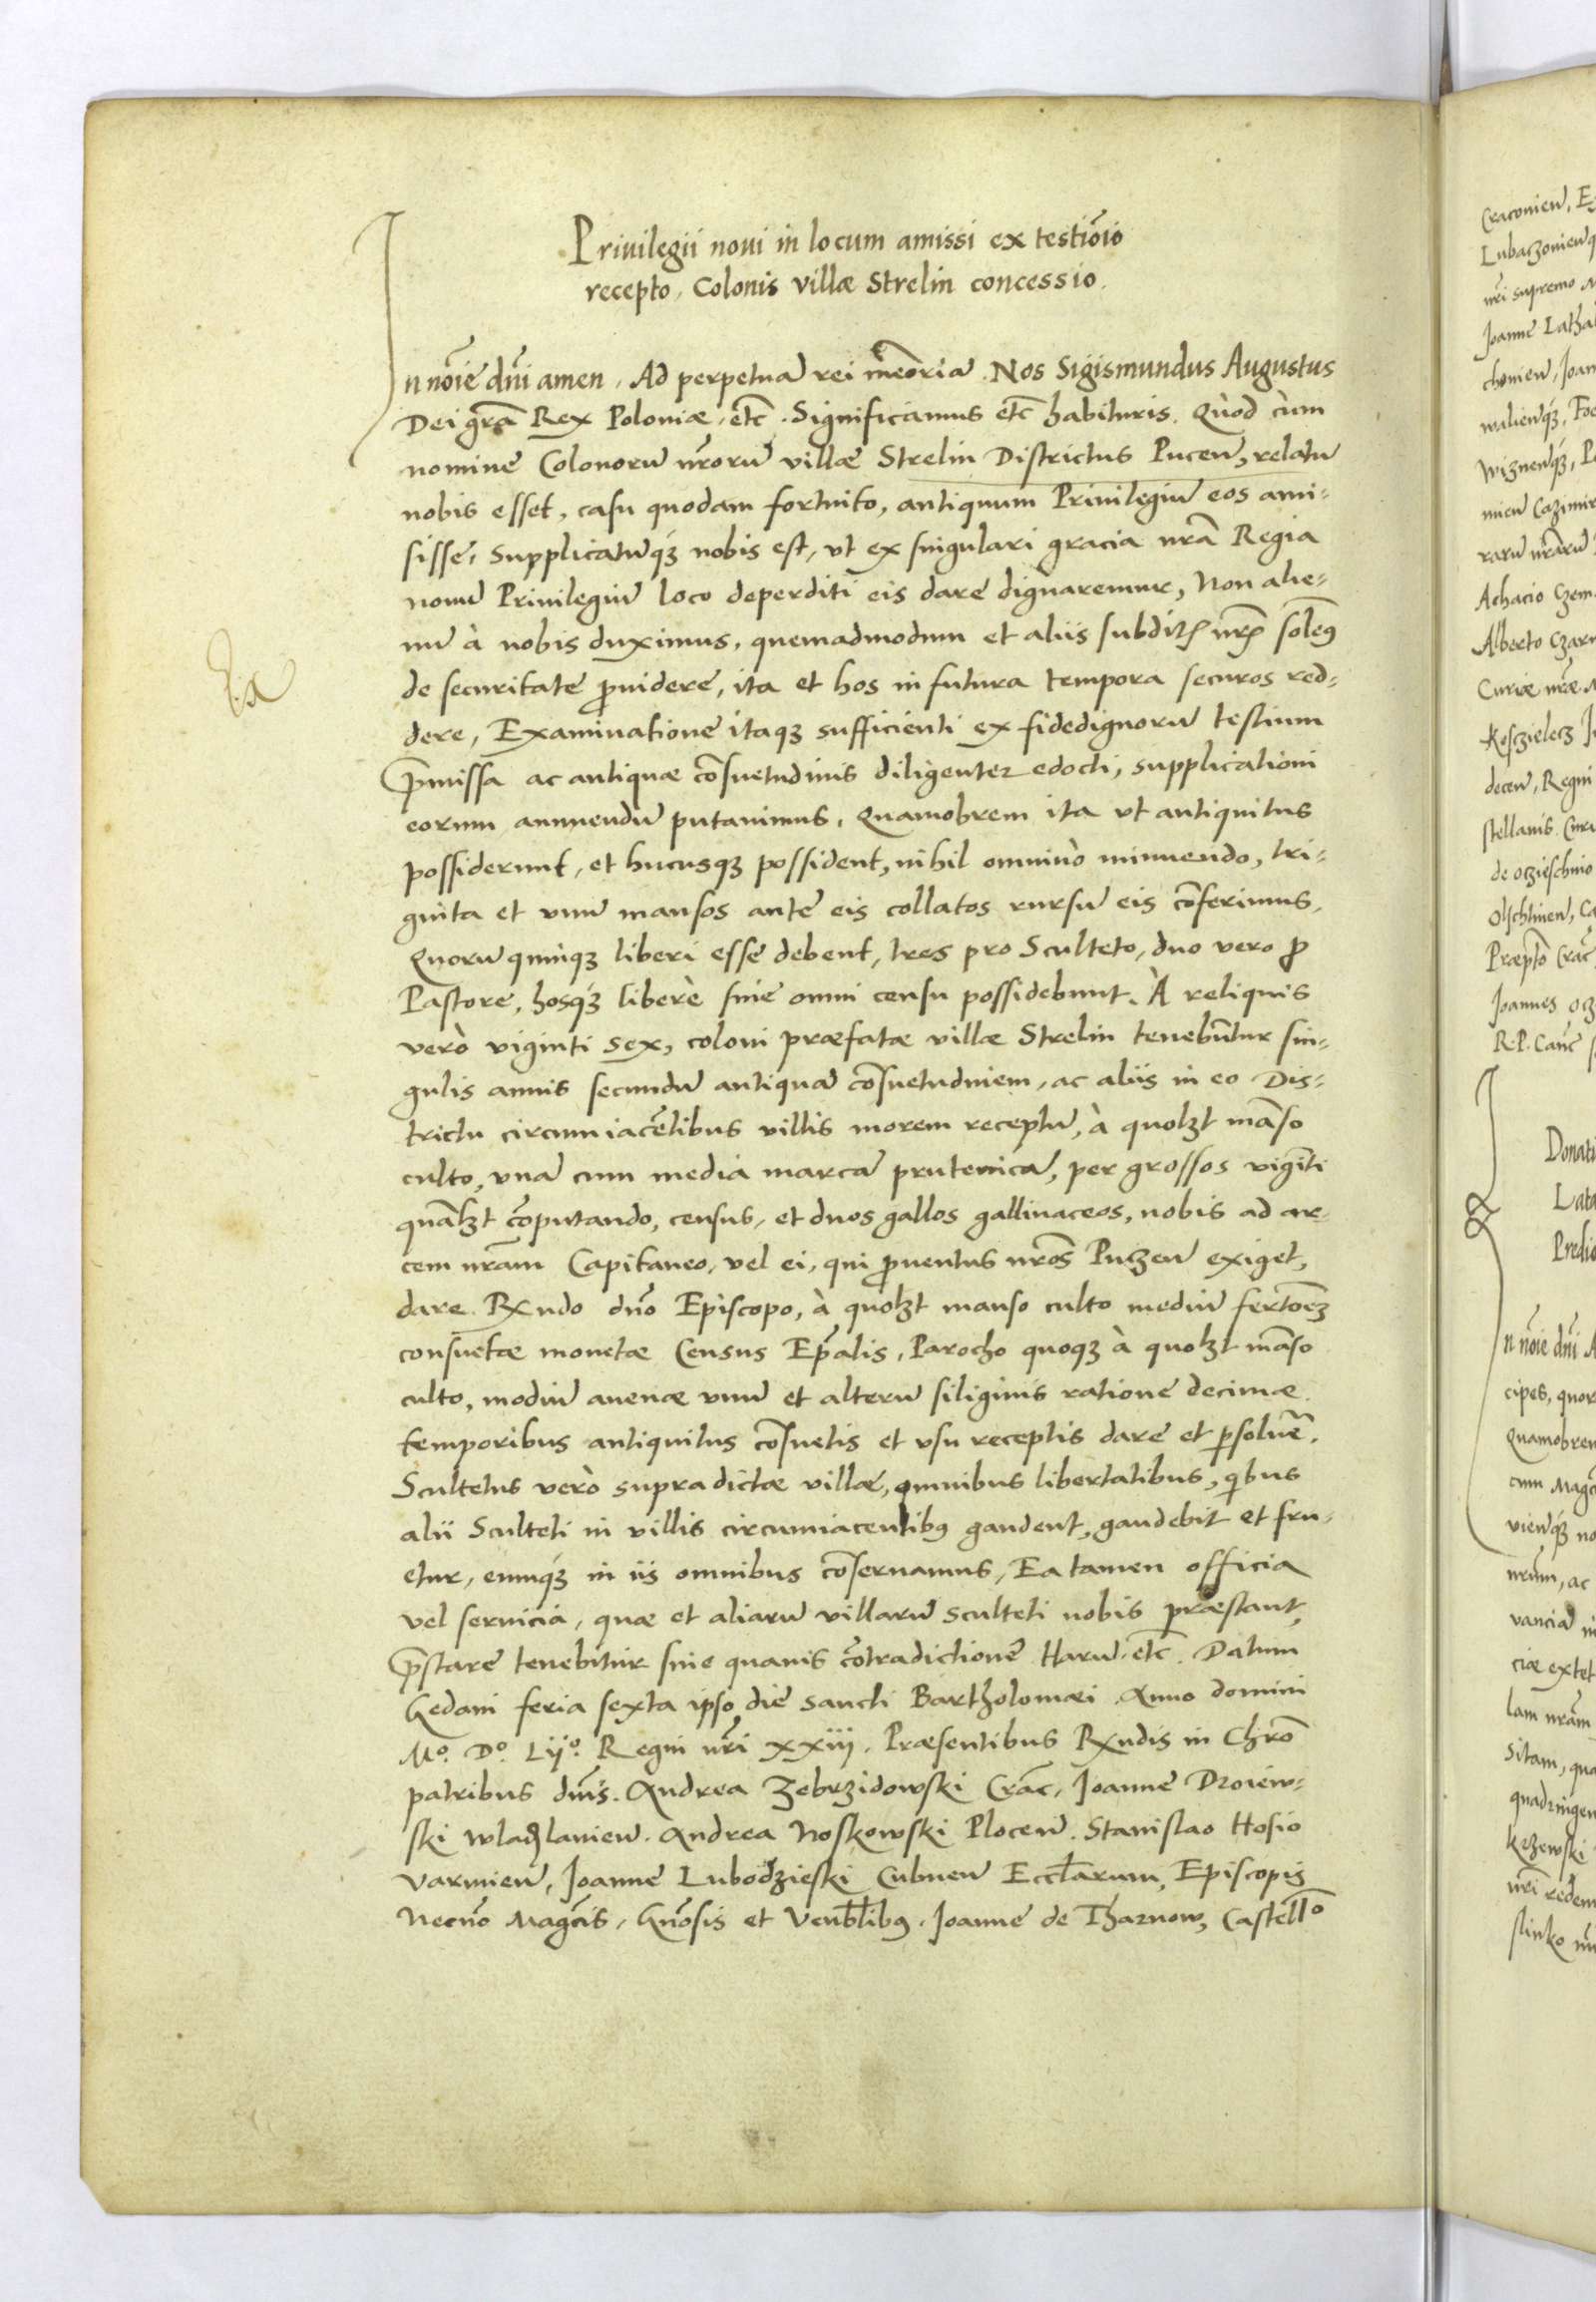 Priuilegii noui in locum amissi ex testiōīo
recepto, Colonis villæ Strelin concessio.
In nōīe dn̄i amen. Ad perpetuā rei mēoriā. Nos Sigismundus Augustus
Dei gr̄a Rex Poloniæ, etc̄. Significamus etc̄ habituris. Quòd cùm
nomine Colonorū nr̄orū villæ Strelin Districtus Pucen̄, relatū
nobis esset, casu quodam fortuito, antiquum Priuilegiū eos ami-
sisse, supplicatūq́ꝫ nobis est, vt ex singulari gracia nr̄a Regia
nouū Priuilegiū loco deperditi eis dare dignaremur, Non alie-
nū à nobis duximus, quemadmodum et aliis subditꝭ nr̄ꝭ solem9
de securitate ꝓuidere, ita et hos in futura tempora securos red-
dere, Examinatione itaqꝫ sufficienti ex fidedignorū testium
p̄missa ac antiquæ cōsuetudinis diligenter edocti, supplicationi
eorum annuendū putauimus, Quamobrem ita vt antiquitus
possiderunt, et hucusqꝫ possident, nihil omninò minuendo, tri-
ginta et vnū mansos ante eis collatos rursū eis cōferimus,
Quorū quinqꝫ liberi esse debent, tres pro Sculteto, duo vero ꝓ
Pastore, hosq́ꝫ liberè sine omni censu possidebunt. À reliquis
verò viginti sex, coloni præfatæ villæ Strelin tenebūtur sin-
gulis annis secundū antiquā cōsuetudinem, ac aliis in eo Dis-
trictu circumiacētibus villis morem receptū, à quolꝫt māso
culto, vnā cum media marcā prutenicā, per grossos vigīti
quālꝫt cōputando, census, et duos gallos gallinaceos, nobis ad ar-
cem nr̄am Capitaneo, vel ei, qui ꝓuentus nr̄os Putzen̄ exiget,
dare. Rx̄ndo dn̄o Episcopo, à quolꝫt manso culto mediū fertōēꝫ
consuetæ monetæ Census Ep̄alis, Parocho quoqꝫ à quolꝫt māso
culto, modiū auenæ vnū et alterū siliginis ratione decimæ
temporibus antiquitus cōsuetis et vsu receptis dare et ꝑsoluē̄.
Scultetus verò supradictæ villæ, omnibus libertatibus, qbus
alii Sculteti in villis circumiacentib9 gaudent, gaudebit et fru-
etur, eumq́ꝫ in iis omnibus cōseruamus, Ea tamen officia
vel seruicia, quæ et aliarū villarū sculteti nobis præstant,
p̄stare tenebitur sine quauis cōtradictione Harū etc̄. Datum
Gedani feria sexta ipso die sancti Bartholomæi Anno domini
Mº. Dº. Lijº. Regni nr̄i xxiij. Præsentibus Rx̄ndis in Chr̄o
patribus dn̄is. Andrea Zebrzidowski Crac̄, Joanne Droiew-
ski Wladislauien̄. Andrea Noskowski Plocen̄. Stanislao Hosio
Varmien̄, Joanne Lubodzieski Culmen̄ Eccl̄arum, Episcopis
Necnō Magc̄is, Gn̄osis et Venbl̄ib9. Joanne de Tharnow, Castell̄o
Craconien̄,
nr̄i supremo
Joanne
Achacio
Alberto
Curiæ nr̄æ
decen̄, Regni
stellanis
Joannes
R.P. Canc̄
Donati
Lata
Predi
In nōīe dn̄i A
cipes, quor
Quamobrem
cum Mag
nr̄um, ac
ciæ extet
lam nr̄am
sitam, qua
quadringen
nr̄i redem